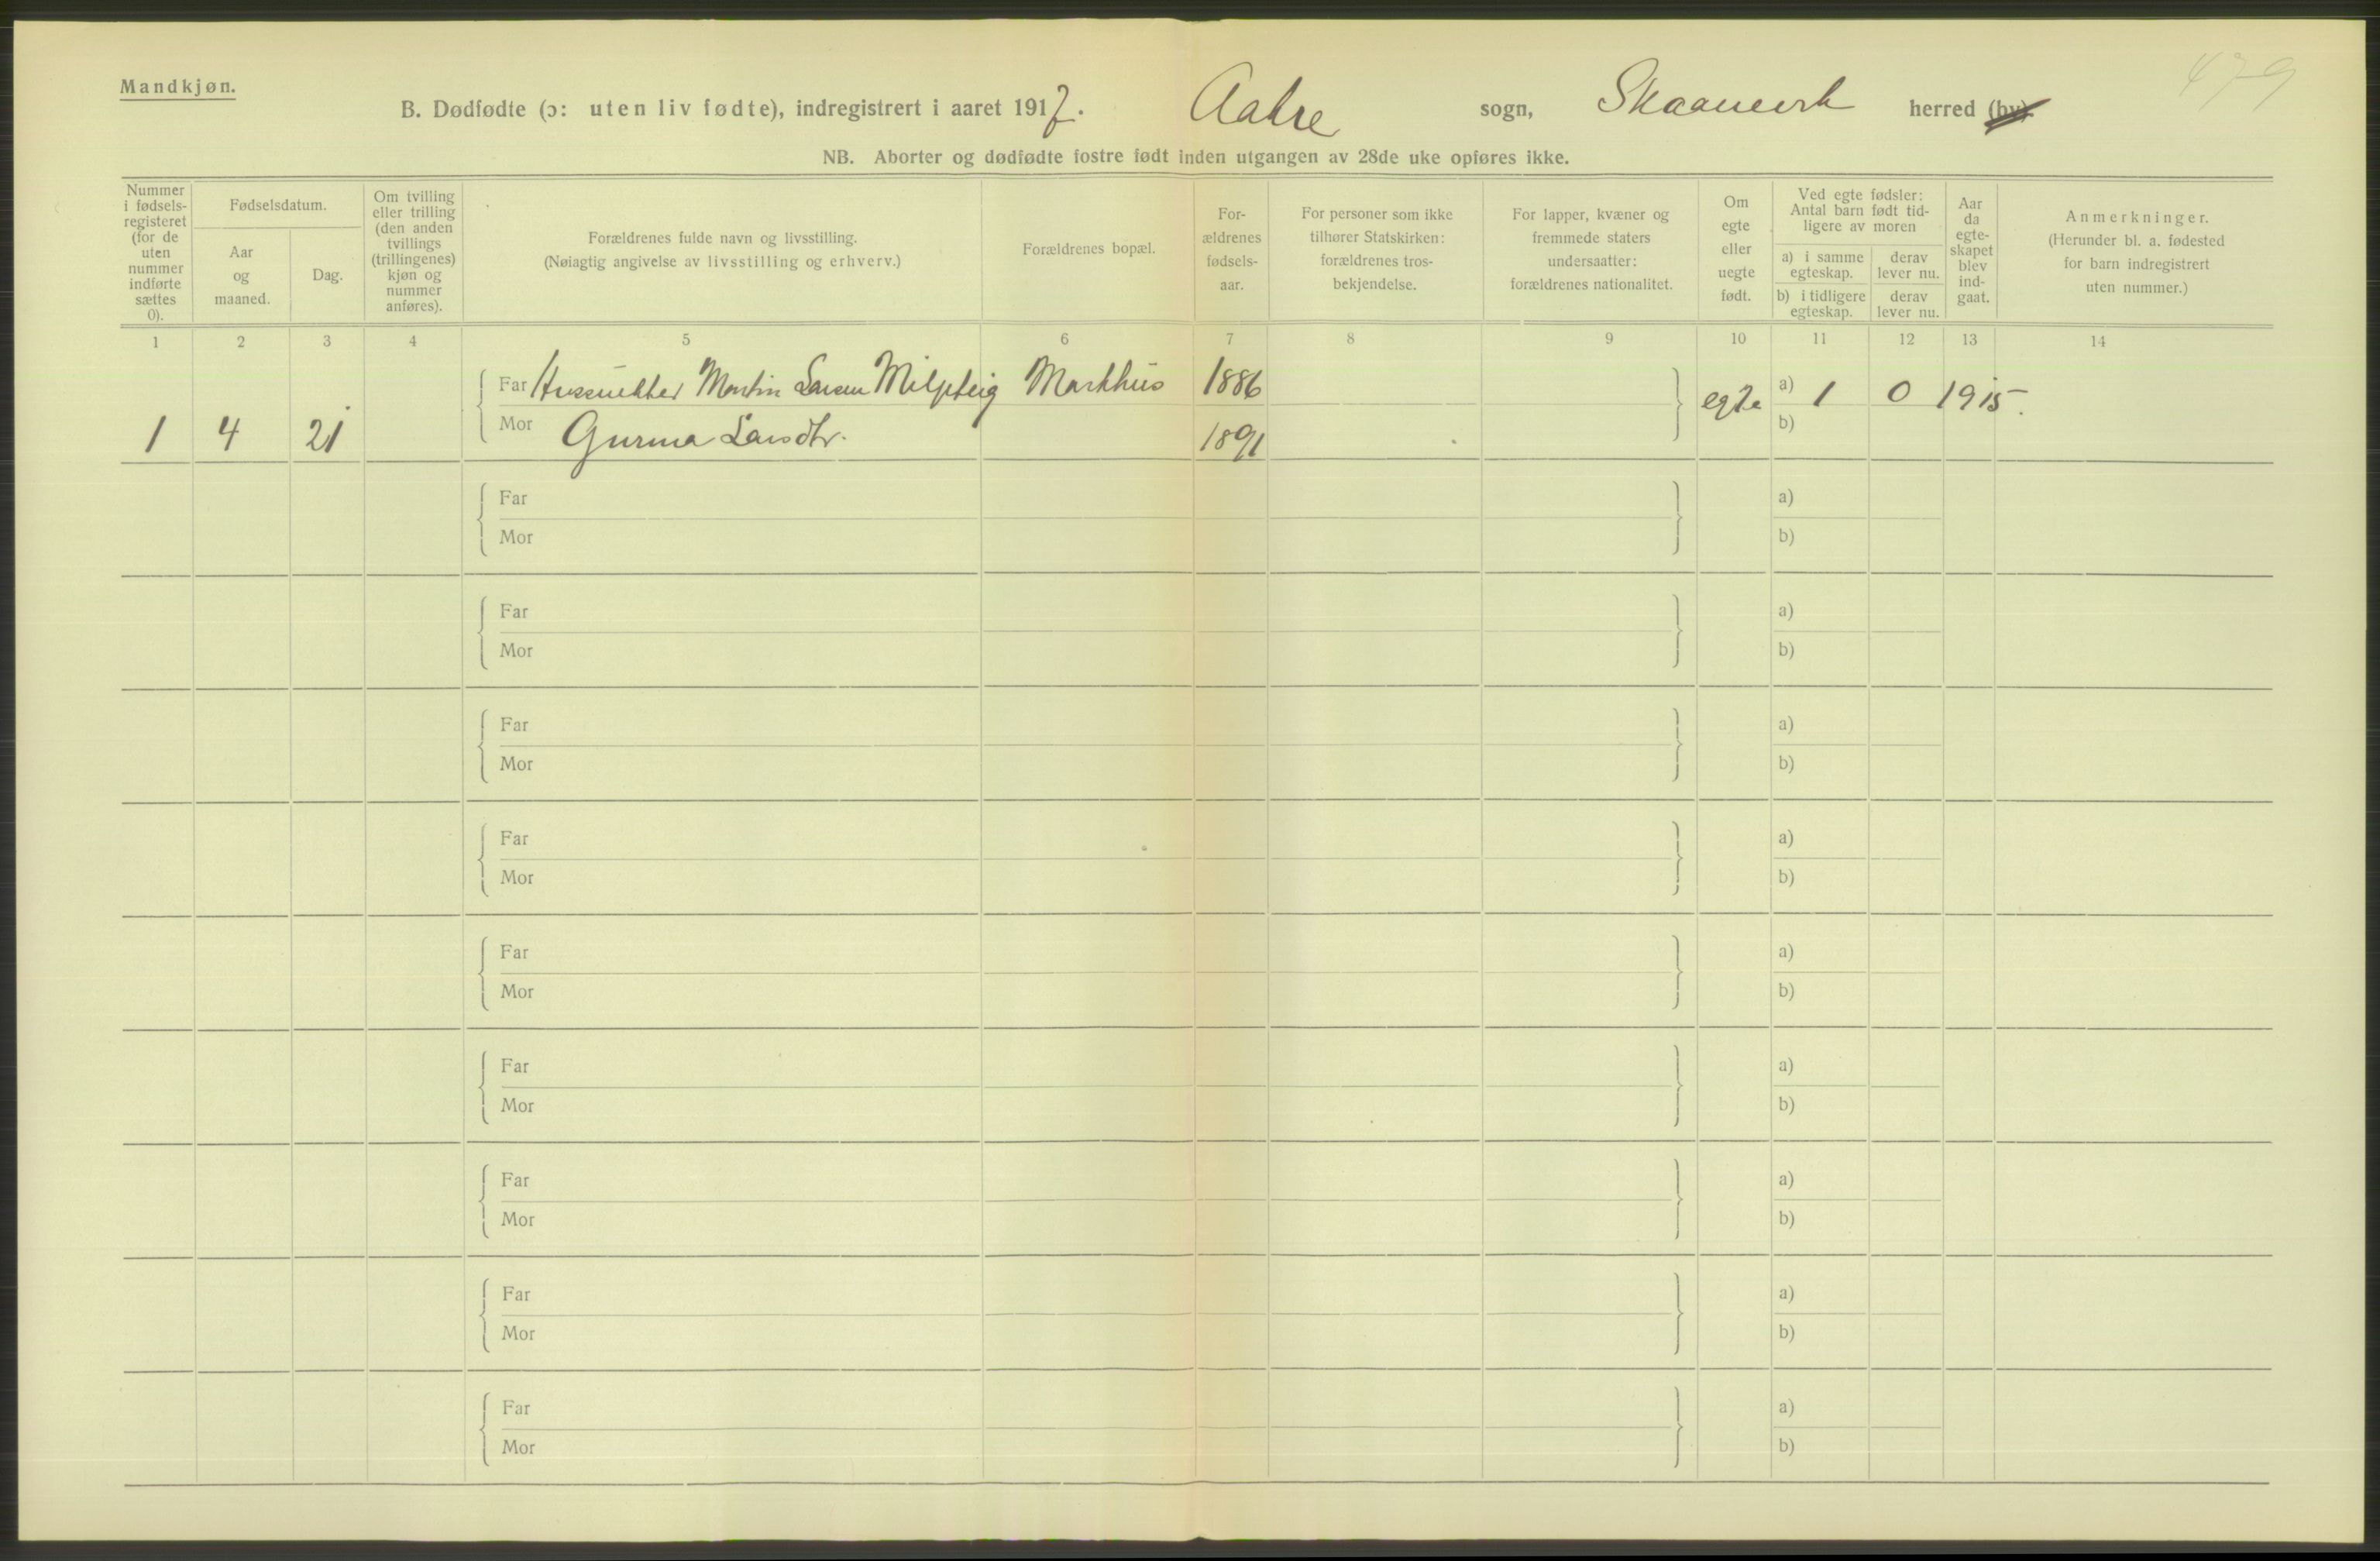 Mandkjøn.
479
B. Dødfødte (ɔ: uten liv fødte), indregistrert i aaret 1917. Aakre sogn, Skaanevik herred (by).
NB. Aborter og dødfødte fostre født inden utgangen av 28de uke opføres ikke.
Nummer
i fødsels-
registeret
(for de
uten
nummer
indførte
sættes
0).
Fødselsdatum.
Aar
og
maaned.
Dag.
Om tvilling
eller trilling
(den anden
tvillings
(trillingenes)
kjøn og
nummer
anføres).
Forældrenes fulde navn og livsstilling.
(Nøiagtig angivelse av livsstilling og erhverv.)
Forældrenes bopæl.
For-
ældrenes
fødsels-
aar.
For personer som ikke
tilhører Statskirken:
forældrenes tros-
bekjendelse.
For lapper, kvæner og
fremmede staters
undersaatter:
forældrenes nationalitet.
Om
egte
eller
uegte
født.
Ved egte fødsler:
Antal barn født tid-
ligere av moren
a) i samme
egteskap.
derav
lever nu.
b) i tidligere
egteskap.
derav
lever nu.
Aar
da
egte-
skapet
blev
ind-
gaat.
Anmerkninger.
(Herunder bl. a. fødested
for barn indregistrert
uten nummer.)
1 2 3 4 5 6 7 8 9 10 11 12 13 14
Far Martin Larsen Markhus 1886 egte a) 1 0 1915.
1 4 21 Mor Gurina Larsdtr. 1891 b)
Far a)
Mor b)
Far a)
Mor b)
Far a)
Mor b)
Far a)
Mor b)
Far a)
Mor b)
Far a)
Mor b)
Far a)
Mor b)
Far a)
Mor b)
Far a)
Mor b)